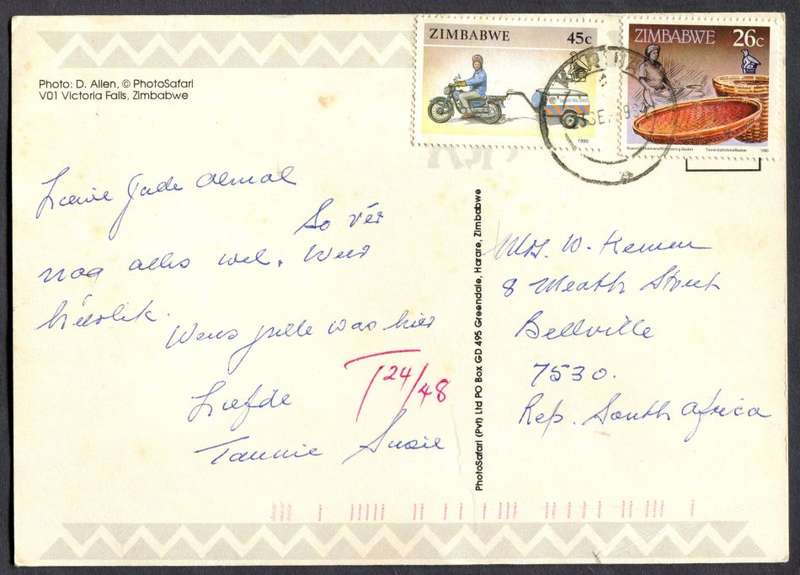 Photo: D. Allen, © PhotoSafari
V01 Victoria Falls, Zimbabwe
ZIMBABWE 45c
ZIMBABWE 26c
1990
Liewe Julle Almal
So vêr
nog alles wel. Weer
heerlik.
Wens julle was hier
T 24/48
Liefde
Tannie Susie
PhotoSafari (Pvt) Ltd PO Box GD 495 Greendale, Harare, Zimbabwe
Mrs. W.
8 Meath Street
Bellville
7530.
Rep. South Africa